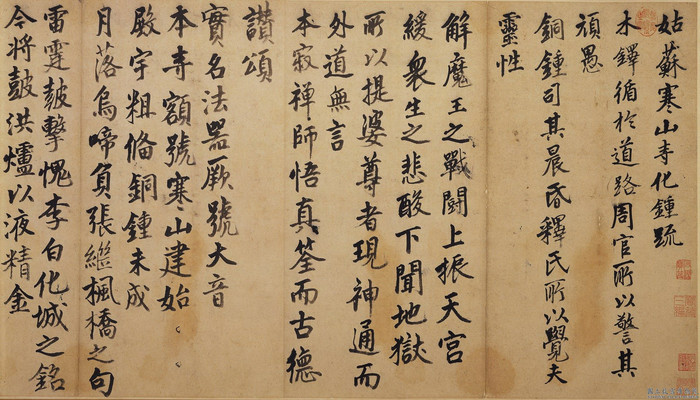 姑蘇寒山寺化鍾疏
木鐸循於道路周官所以警其
頑愚
銅鍾司其晨昏釋氏所以覺夫
靈性
解魔王之戰鬪上振天宮
緩衆生之悲酸下聞地獄
所以提婆尊者現神通而
外道無言
本寂禪師悟真筌而古德
讚頌
實名法器厥號大音
本寺額號寒山建始
殿宇粗俻銅鍾未成
月落烏啼負張繼楓橋之句
雷霆皷擊愧李白化城之銘
今將皷洪爐以液精金